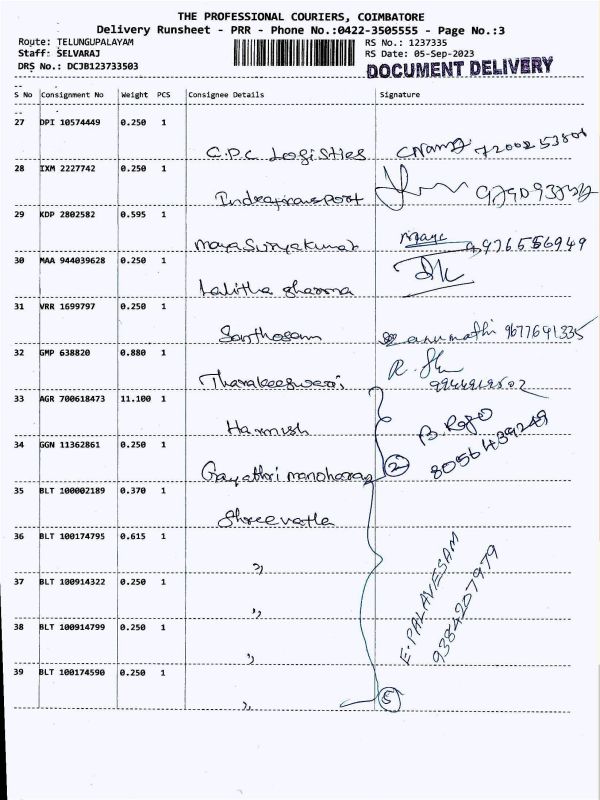 THE PROFESSIONAL COURIERS, COIMBATORE
Delivery Runsheet - PRR - Phone No.:0422-3505555 - Page No.:3
Route: TELUNGUPALAYAM RS No.: 1237335
Staff: SELVARAJ RS Date: 05-Sep-2023
DRS No.: DCJB123733503 DOCUMENT DELIVERY
S No Consignment No Weight PCS Consignee Details Signature
27 DPI 10574449 0.250 1
C.P.C Logistics
28 IXM 2227742 0.250 1
Indra transport
29 KDP 2802582 0.595 1
Maya Suryakumar 9976556949
30 MAA 944039628 0.250 1
Lalitha sharma
31 VRR 1699797 0.250 1
Santhosam anumathi 9677691335
32 GMP 638820 0.880 1
R.
Tharakeeshwari
33 AGR 700618473 11.100 1
Harnish B. Rojo
34 GGN 11362861 0.250 1
8056439249
Gayathri manoharan 2
35 BLT 100002189 0.370 1
Shreevatla
36 BLT 100174795 0.615 1
"
37 BLT 100914322 0.250 1
"
38 BLT 100914799 0.250 1
E. PALAVESAM
9384207979
"
39 BLT 100174590 0.250 1
" 5